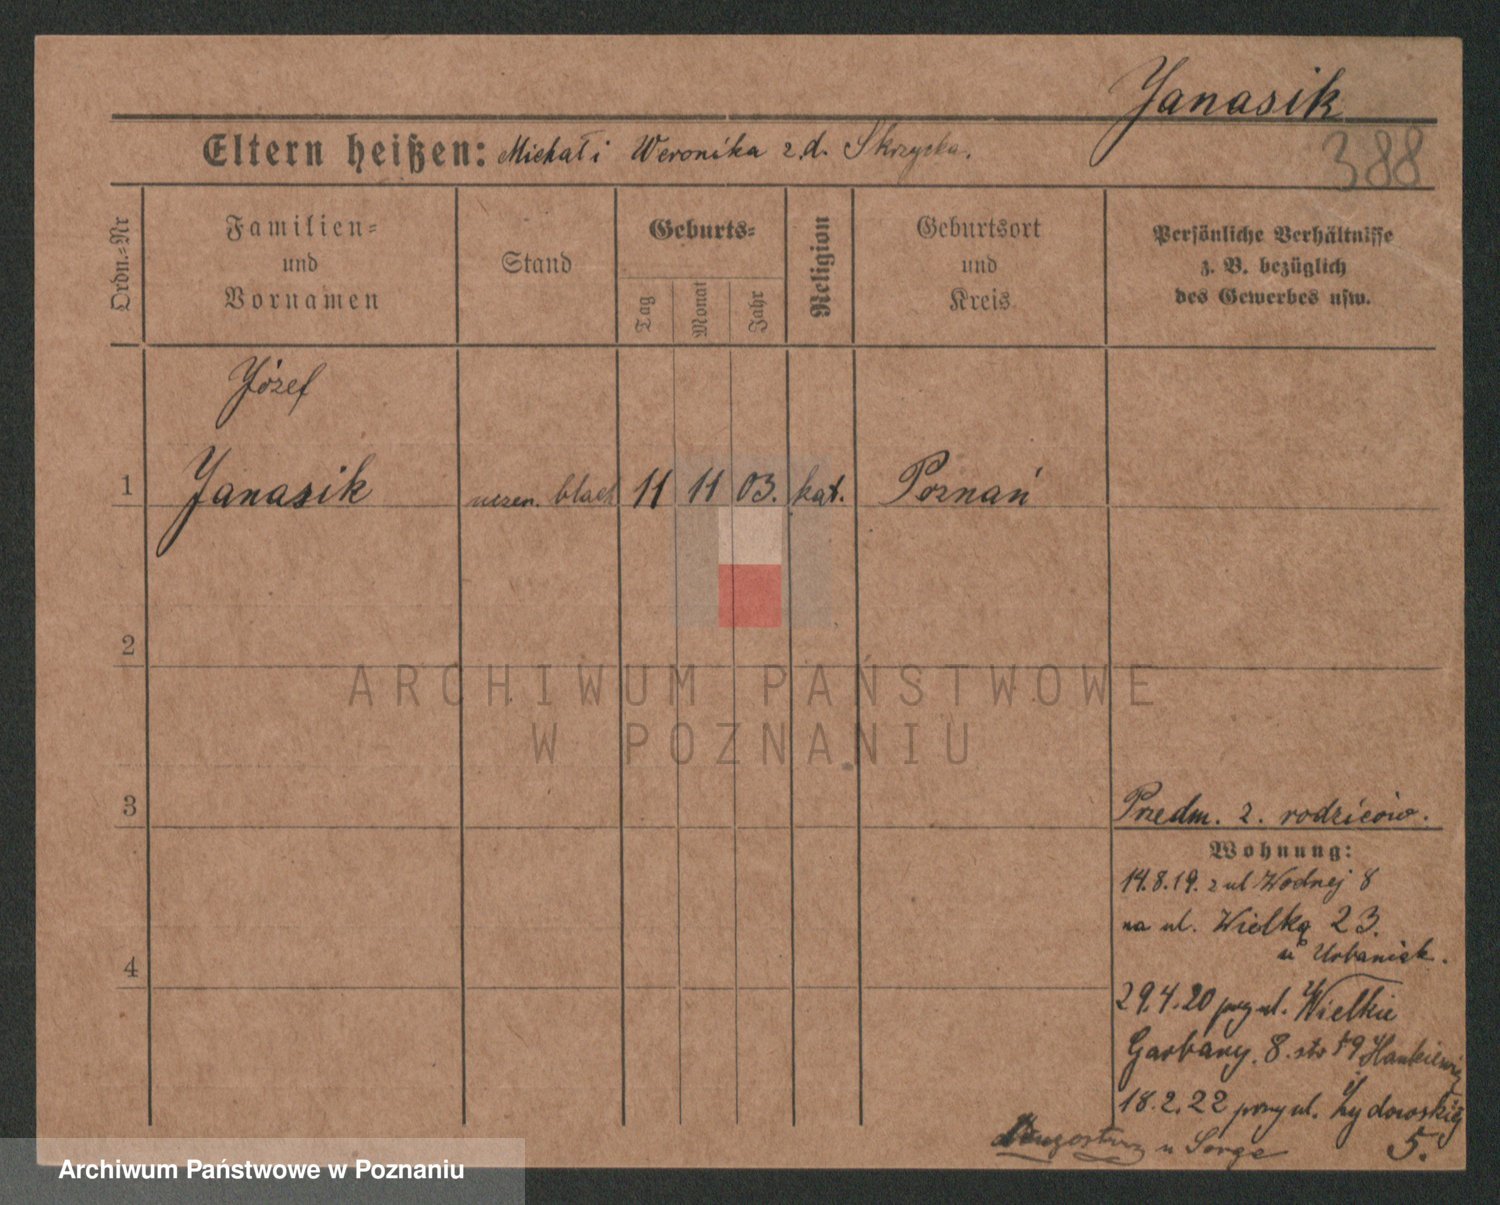 Janasik
388
Eltern heißen: Michał i Weronika z d. Skrzycka.
Ordn.=Nr
Familien=
und
Vornamen
Stand
Geburts=
Tag
Monat
Jahr
Religion
Geburtsort
und
Kreis
Persönliche Verhältnisse
z. B. bezüglich
des Gewerbes usw.
Józef
1 Janasik uczen. blach 11 11 03. kat. Poznań
2
3
4
ARCHIWUM PAŃSTWOWE
W POZNANIU
Przedm. z. rodziców.
Wohnung:
14.8.19. z ul Wodnej 8
na ul. Wielką 23.
u Urbaniak.
29.4.20 przy ul. Wielkie
Garbary. 8. Hankiewicz
18.2.22 przy ul. Żydowskiej
5.
u Sorge
Archiwum Państwowe w Poznaniu